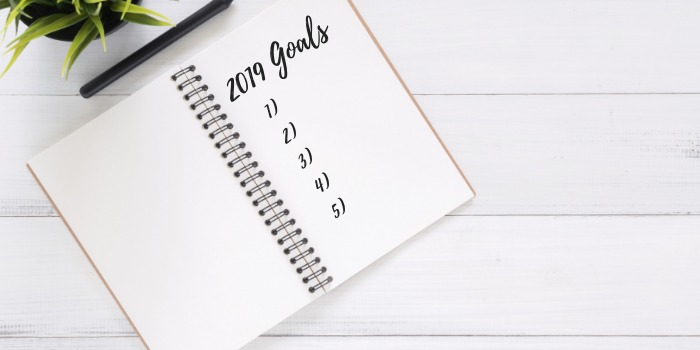 2019 Goals
1)
2)
3)
4)
5)